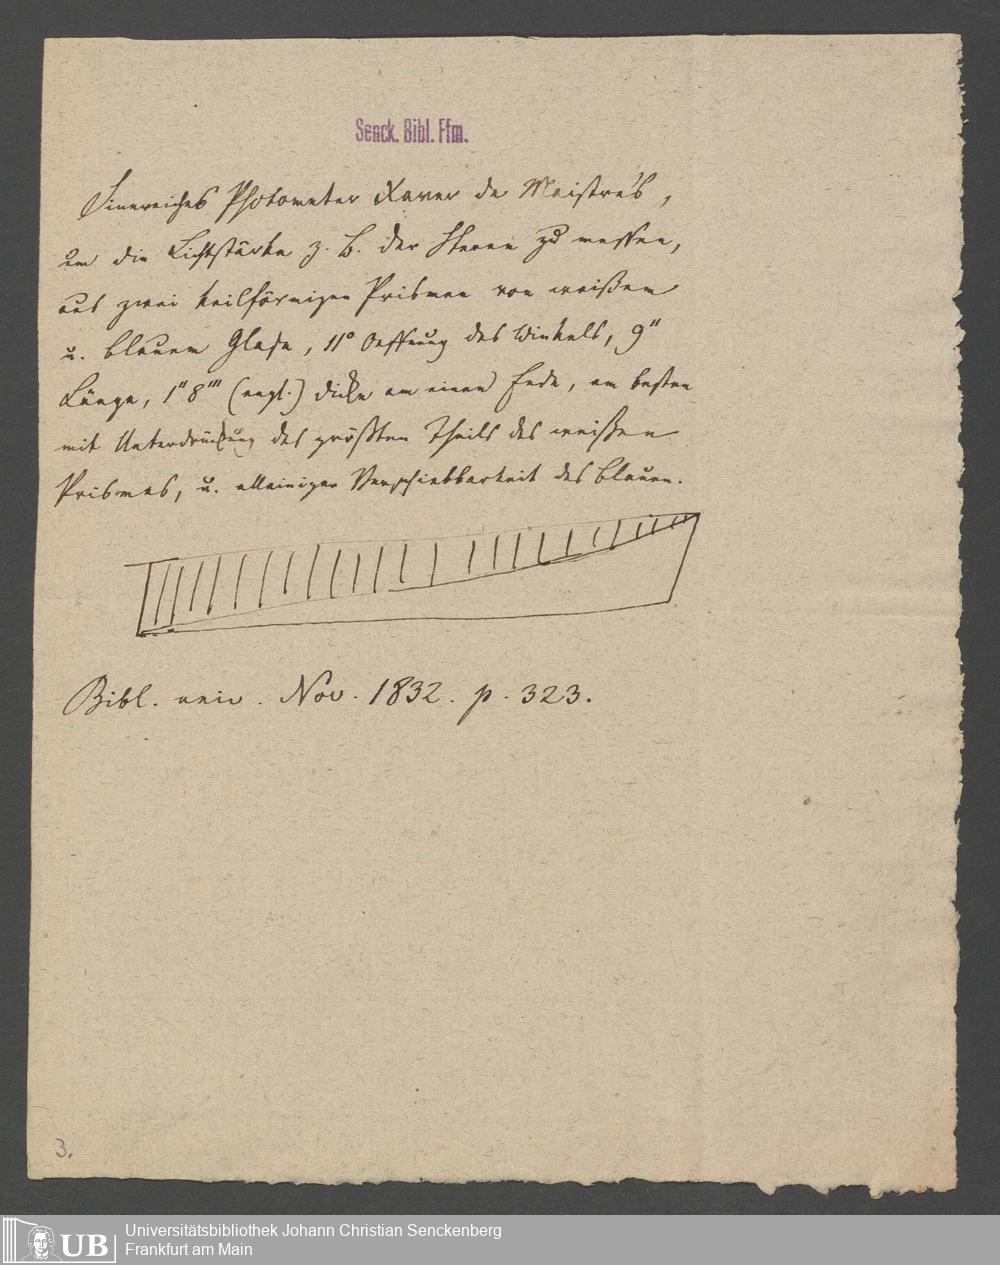 Senck. Bibl. Ffm.
Sinnreiches Photometer Xaver de Maistre's,
um die Lichtstärke z. B. der Sterne zu messen,
aus zwei keilförmigen Prismen von weißem
u. blauem Glase, 11° Oeffnung des Winkels, 9"
Länge, 1" 8''' (engl.) Dicke am einen Ende, am besten
mit Unterdrückung des größten Theils des weißen
Prismas, u. alleiniger Verschiebbarkeit des blauen.
Bibl. univ. Nov. 1832. p. 323.
3.
UB
Universitätsbibliothek Johann Christian Senckenberg
Frankfurt am Main